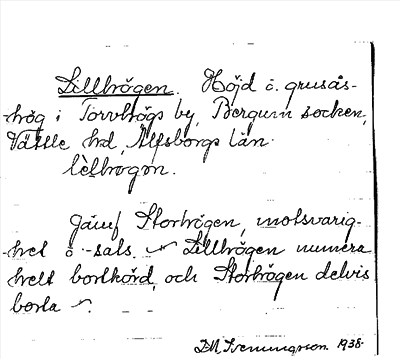 Lillhögen. Höjd o. grusås-
hög i Torvhögs by, Bergum socken,
Vättle hd, Älfsborgs län.
lelhogon.
Jämf Storhögen, motsvarig-
het o -sats. Lillhögen numera
helt bortkörd, och Storhögen delvis
borta
1938.